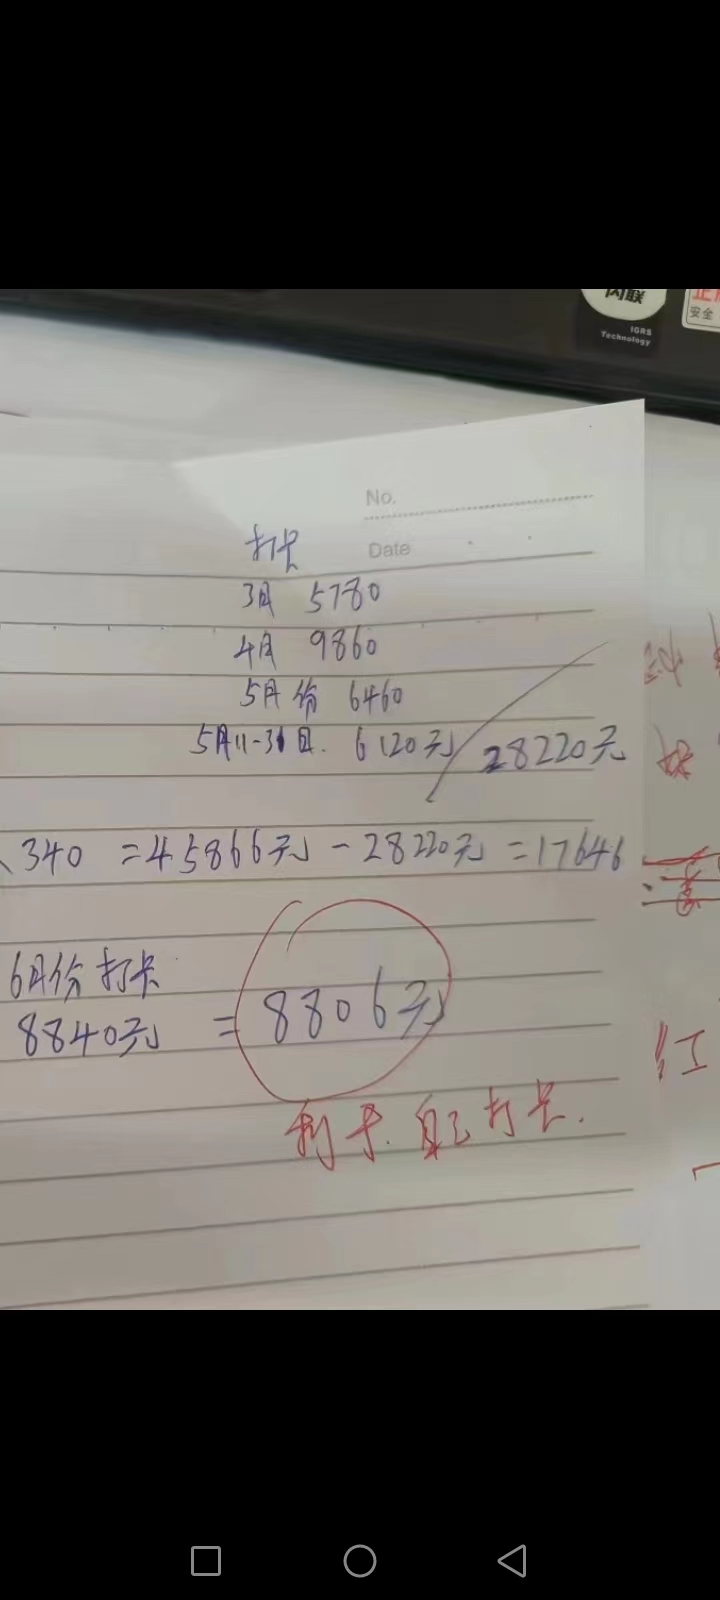 闪联
IGRS
Technology
安全
No.
Date
打卡
3月 5780
4月 9860
5月份 6460
5月11-31日. 6120元 28220元
340 =45866元 - 28220元 =17646
6月份打卡
8840元 = 8806元
自己打卡.
红